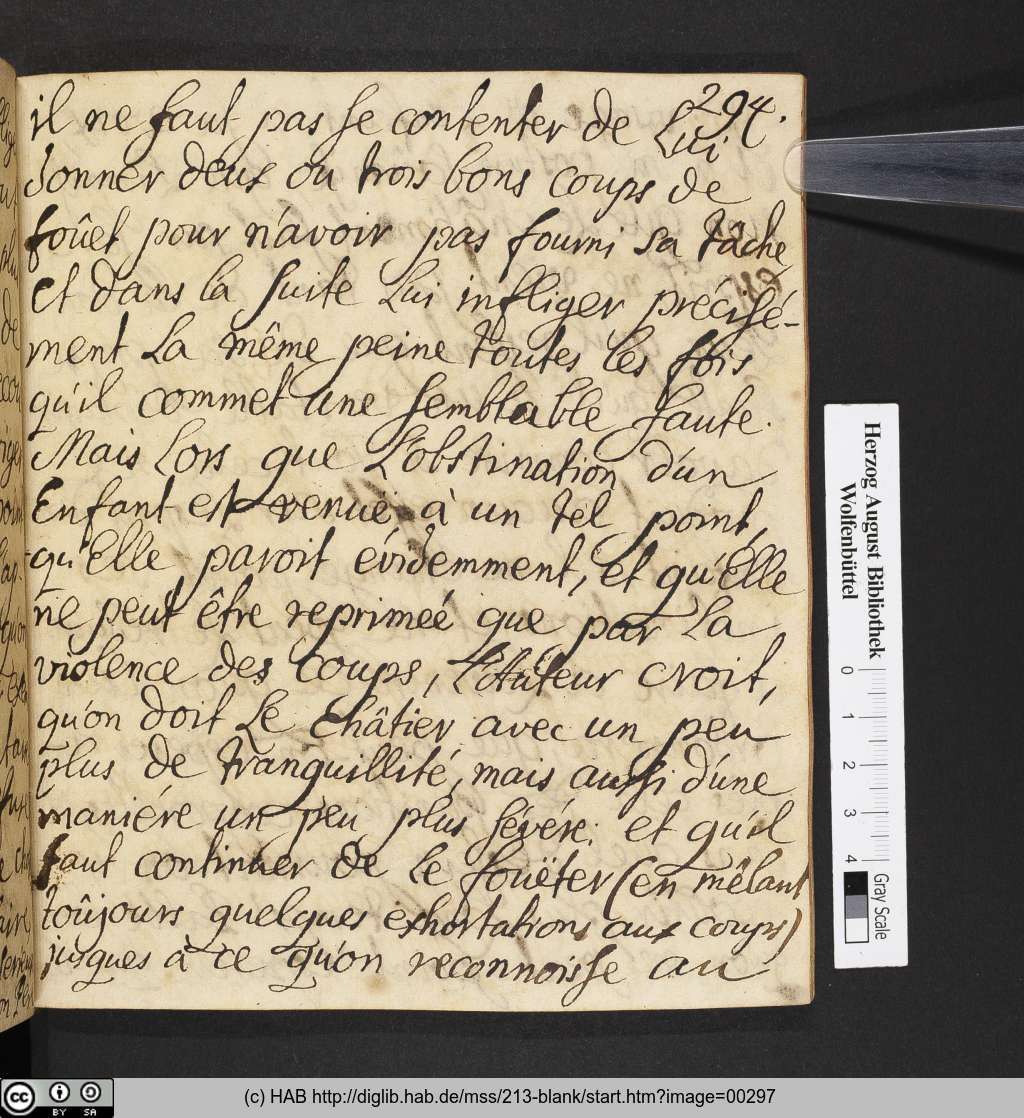 294.
il ne faut pas se contenter de Lui
donner deux ou trois bons coups de
foûet pour n'avoir pas fourni sa tâche,
et dans la suite Lui infliger précisé-
ment La même peine toutes les fois
qu'il commet une semblable faute.
Mais Lors que L'obstination d'un
Enfant est venuë à un tel point,
qu'Elle paroit évidemment, et qu'Elle
ne peut être reprimeé que par La
violence des coups, L'Auteur croit,
qu'on doit Le châtier avec un peu
plus de tranquillité, mais aussi d'une
maniére un peu plus sévére: et qu'il
faut continuer de le fouëter (en mêlant
toûjours quelques exhortations aux coups)
jusques à ce qu'on reconnoisse au
Herzog August Bibliothek
Wolfenbüttel
0 1 2 3 4
Gray Scale
cc BY SA
(c) HAB http://diglib.hab.de/mss/213-blank/start.htm?image=00297